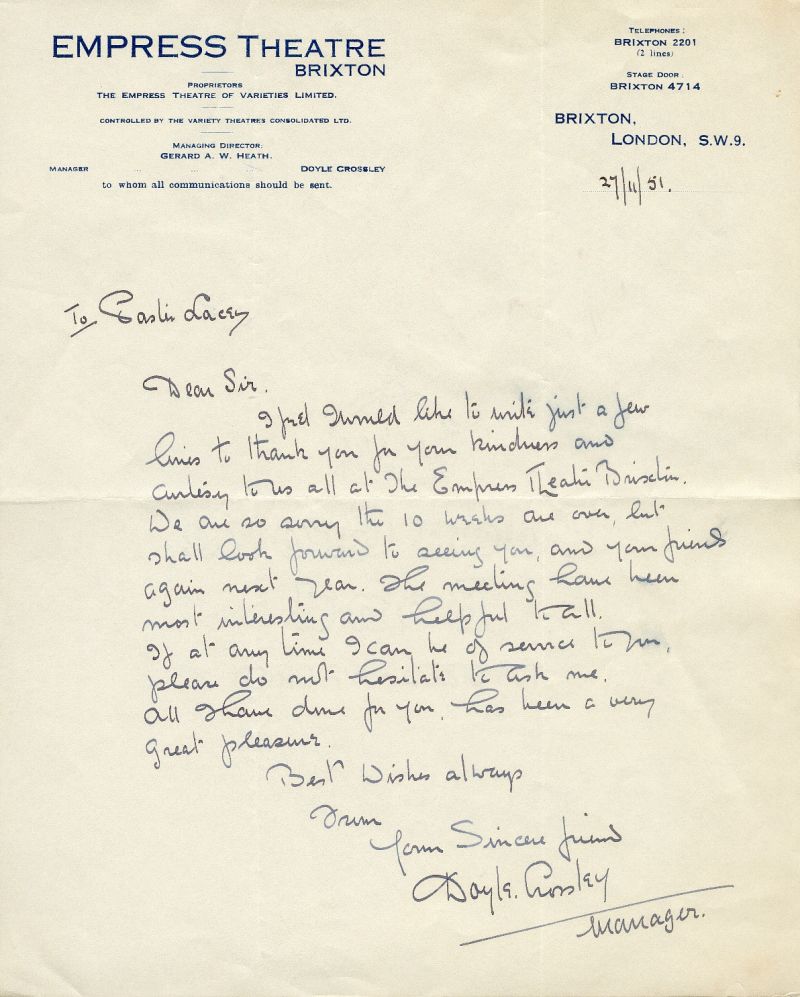 EMPRESS THEATRE
BRIXTON
PROPRIETORS
THE EMPRESS THEATRE OF VARIETIES LIMITED.
CONTROLLED BY THE VARIETY THEATRES CONSOLIDATED LTD.
MANAGING DIRECTOR:
GERARD A. W. HEATH.
MANAGER DOYLE CROSSLEY
to whom all communications should be sent.
TELEPHONES:
BRIXTON 2201
(2 lines)
STAGE DOOR:
BRIXTON 4714
BRIXTON,
LONDON, S.W.9.
27/11/51.
To Lacey
Dear Sir.
I feel I would like to write just a few
lines to thank you for your kindness and
to us all at The Empress Theatre Brixton.
We are so sorry the 10 weeks are over, but
shall look forward to seeing you, and your friends
again next year. The meeting have been
most interesting and helpful to all.
If at any time I can be of service to you,
please do not hesitate to ask me.
All I have done for you, has been a very
great pleasure.
Best Wishes always
From
Your Sincere friend
Doyle. Crossley
Manager.